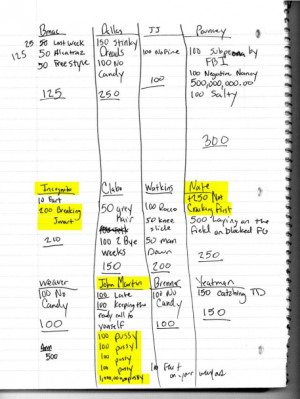 Dallas
JJ
25 50 Last Week
125 50 Alcatraz
50 Free Style
125
150 Stinky
Dreads
100 No
Candy
250
100 No Fine
100
100 Subpoena by
FBI
100 Negative Nancy
500,000,000.00
100 Salty
300
Incognito
10 Fart
200 Breaking
Smart
210
Clabo
50 grey
Hair
100 2 Bye
Weeks
150
Watkins
100 Rocco
50 knee
slide
50 man
Down
200
Nate
+250 Not
Cracking First
500 Laying on the
field on blocked FG
250
Weaver
100 No
Candy
100
500
John Martin
100 Late
100 Keeping the
ready call to
yourself
100 pussy
100 pussy
100 pussy
100 pussy
Brenner
100 No
Candy
100
100 Fart
on your way out
Yeatman
150 catching TD
150